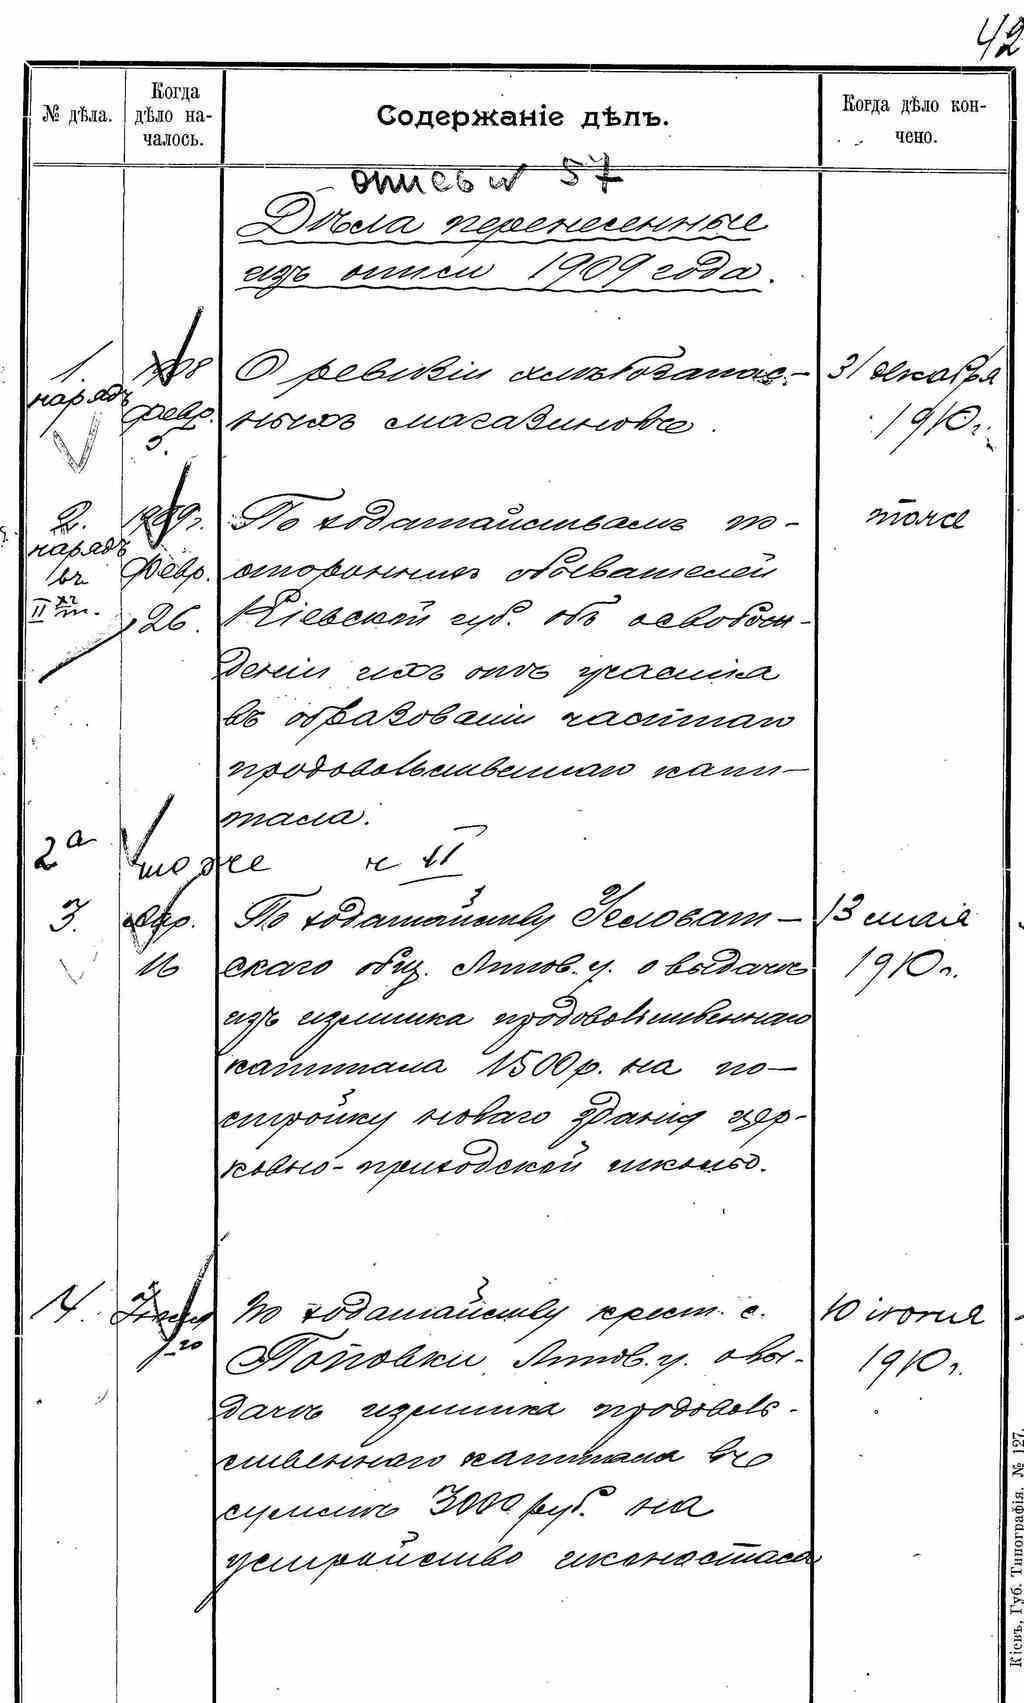 42
№ дѣла.
Когда
дѣло на-
чалось.
Содержаніе дѣлъ.
Когда дѣло кон-
чено.
опись № 57
Дѣла перенесенные
изъ описи 1909 года.
1
нарядъ
1908
февр.
5.
О ревизіи хлѣбозапас-
ныхъ магазиновъ.
31 декабря
1910 г.
2.
нарядъ
въ
II хъ т.
1909 г.
Февр.
26.
По ходатайствамъ по-
стороннихъ обывателей
Кіевской губ. объ освобож-
деніи ихъ отъ участія
въ образованіи частнаго
продовольственнаго капи-
тала.
тоже
2а
тоже ч II
3.
Апр.
16
По ходатайству
скаго общ. Липов. у. о выдачѣ
изъ излишка продовольственнаго
капитала 1500 р. на по-
стройку новаго зданія цер-
ковно-приходской школы.
13 мая
1910 г.
4.
1-го
По ходатайству крест. с.
Поповки, Липов. у. о вы-
дачѣ излишка продоволь-
ственнаго капитала въ
суммѣ 3000 руб. на
устройство иконостаса
10 іюня
1910 г.
Кіевъ, Губ. Типографія. № 127.